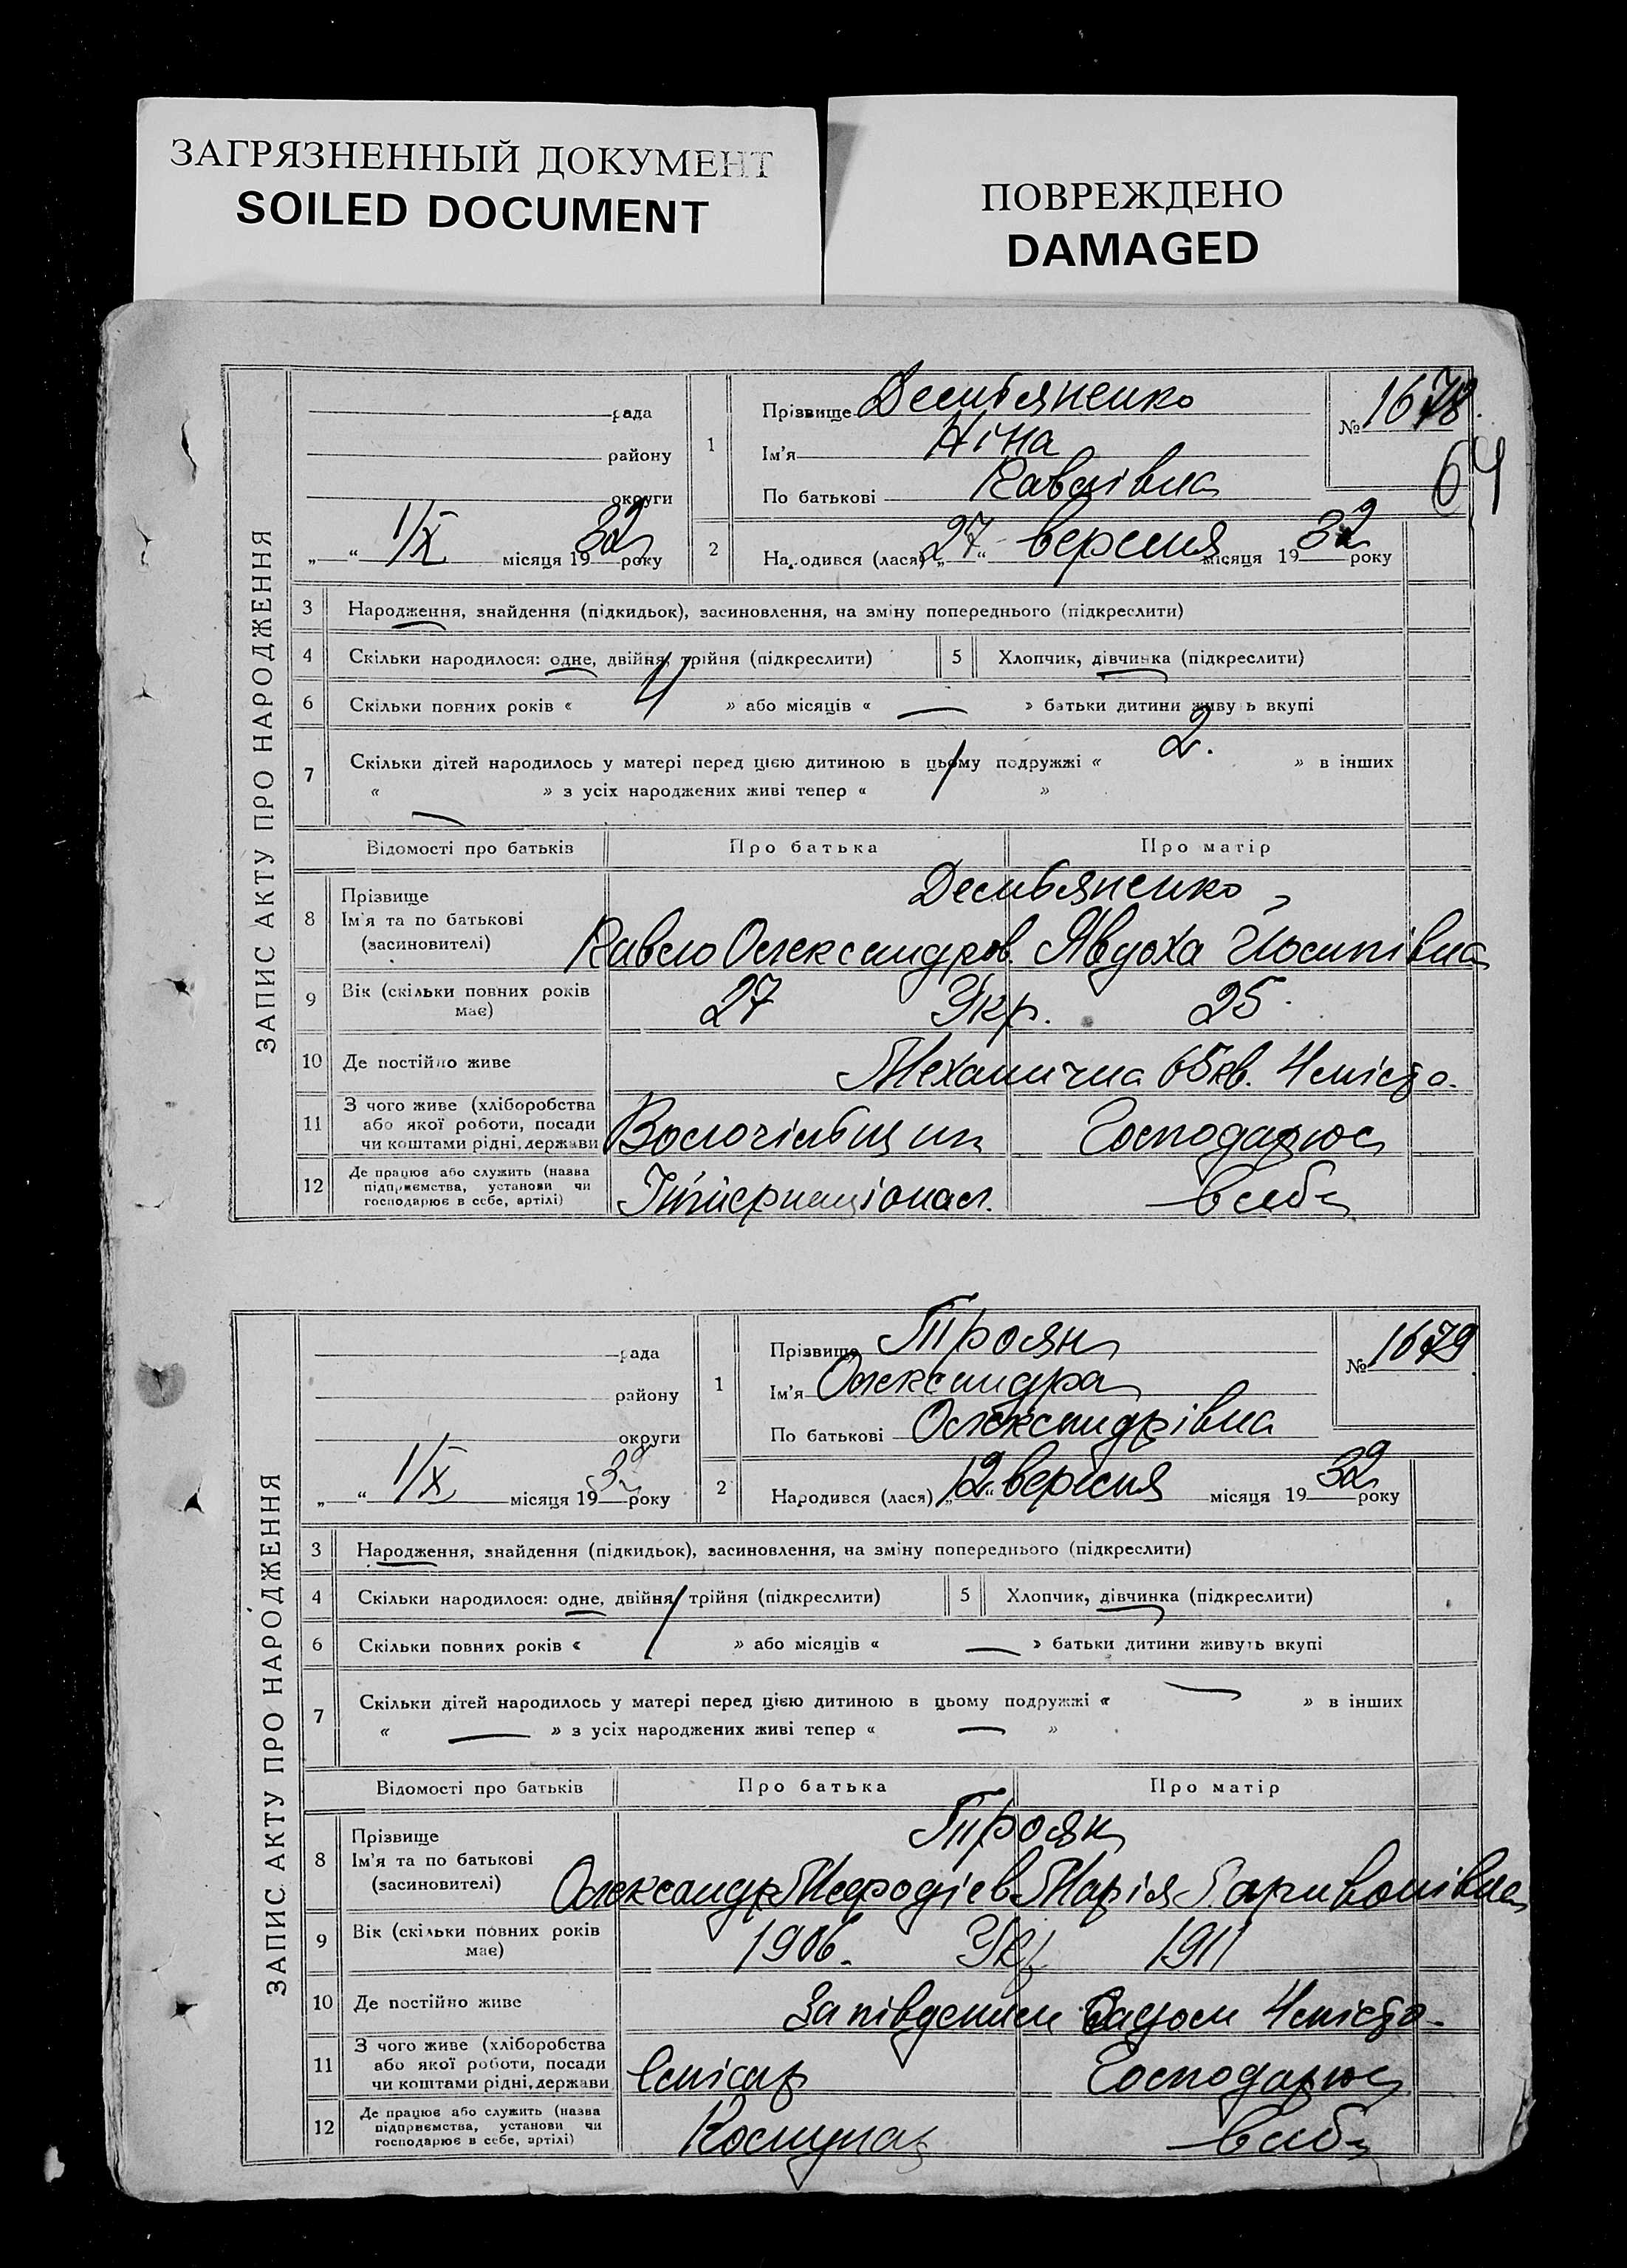 ЗАГРЯЗНЕННЫЙ ДОКУМЕНТ
SOILED DOCUMENT
ПОВРЕЖДЕНО
DAMAGED
ЗАПИС АКТУ ПРО НАРОДЖЕННЯ
рада
району
округи
„ “ 1/X місяця 1932 року
1
Прізвище Демьяненко
Ім'я Ніна
По батькові Павлівна
№ 1678.
64
2
Народився (лася) „27“ вересня місяця 1932 року
3 Народження, знайдення (підкидьок), засиновлення, на зміну попереднього (підкреслити)
4 Скільки народилося: одне, двійня, трійня (підкреслити) 5 Хлопчик, дівчинка (підкреслити)
6 Скільки повних років « 4 » або місяців « — » батьки дитини живуть вкупі
7 Скільки дітей народилось у матері перед цією дитиною в цьому подружжі « 2. » в інших
« — » з усіх народжених живі тепер « 1 »
Відомості про батьків Про батька Про матір
8 Прізвище
Ім'я та по батькові
(засиновителі)
Демьяненко
Павло Олександров. Явдоха Йосипівна
9 Вік (скільки повних років має) 27 Укр. 25
10 Де постійно живе Механична 65 кв. 4 місто.
11 З чого живе (хліборобства
або якої роботи, посади
чи коштами рідні, держави
Волочільщик Господарює
12 Де працює або служить (назва
підприємства, установи чи
господарює в себе, артілі)
Інтернаціонал. в себе
ЗАПИС АКТУ ПРО НАРОДЖЕННЯ
рада
району
округи
„ “ 1/X місяця 1932 року
1
Прізвище Троян
Ім'я Олександра
По батькові Олександрівна
№ 1679
2
Народився (лася) „12“ вересня місяця 1932 року
3 Народження, знайдення (підкидьок), засиновлення, на зміну попереднього (підкреслити)
4 Скільки народилося: одне, двійня, трійня (підкреслити) 5 Хлопчик, дівчинка (підкреслити)
6 Скільки повних років « 1 » або місяців « — » батьки дитини живуть вкупі
7 Скільки дітей народилось у матері перед цією дитиною в цьому подружжі « — » в інших
« — » з усіх народжених живі тепер « — »
Відомості про батьків Про батька Про матір
8 Прізвище
Ім'я та по батькові
(засиновителі)
Троян
Олександр Мефодієв. Марія
9 Вік (скільки повних років має) 1906. Укр 1911
10 Де постійно живе За південим 4 місто.
11 З чого живе (хліборобства
або якої роботи, посади
чи коштами рідні, держави
Слюсар Господарює
12 Де працює або служить (назва
підприємства, установи чи
господарює в себе, артілі)
в себе